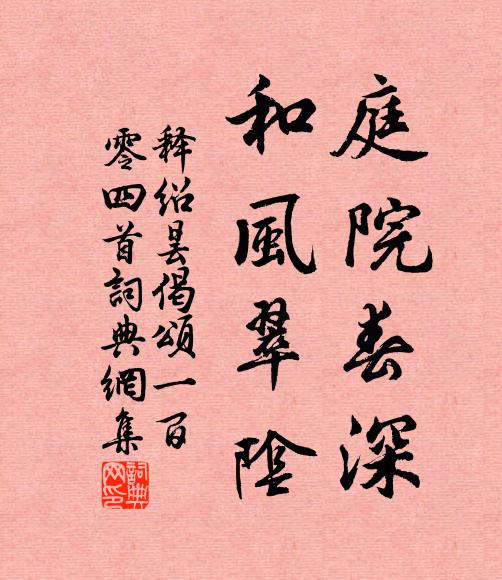 庭院春深
和風翠陰
释绍昙偈頌一百
零四首詞典網集
詞典网印